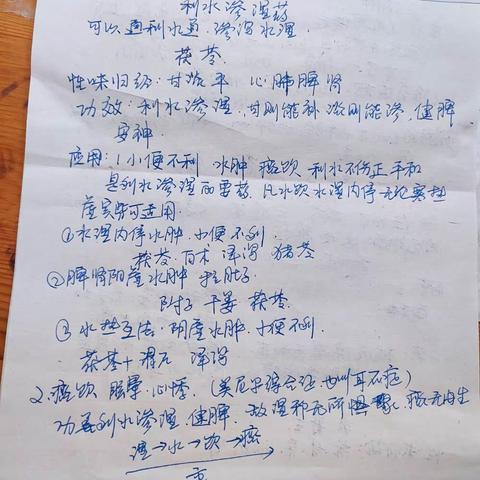 利水渗湿药
可以通利水道,渗泻水湿.
茯苓.
性味归经:甘淡平 心肺脾肾
功效:利水渗湿,甘则能补淡则能渗,健脾
安神.
应用:1小便不利 水肿 痰饮 利水不伤正平和
是利水渗湿的要药,凡水饮水湿内停无论寒热
虚实皆可适用.
①水湿内停水肿,小便不利.
茯苓.白术 泽泻 猪苓
②脾肾阳虚水肿
附子 干姜 茯苓.
③水热互结.阴虚水肿.小便不利.
泽泻
2.痰饮 眩晕.心悸.(美尼尔综合征 也叫耳石症)
利水渗湿 健脾.故湿邪无所 痰无内生
湿→水→饮→痰